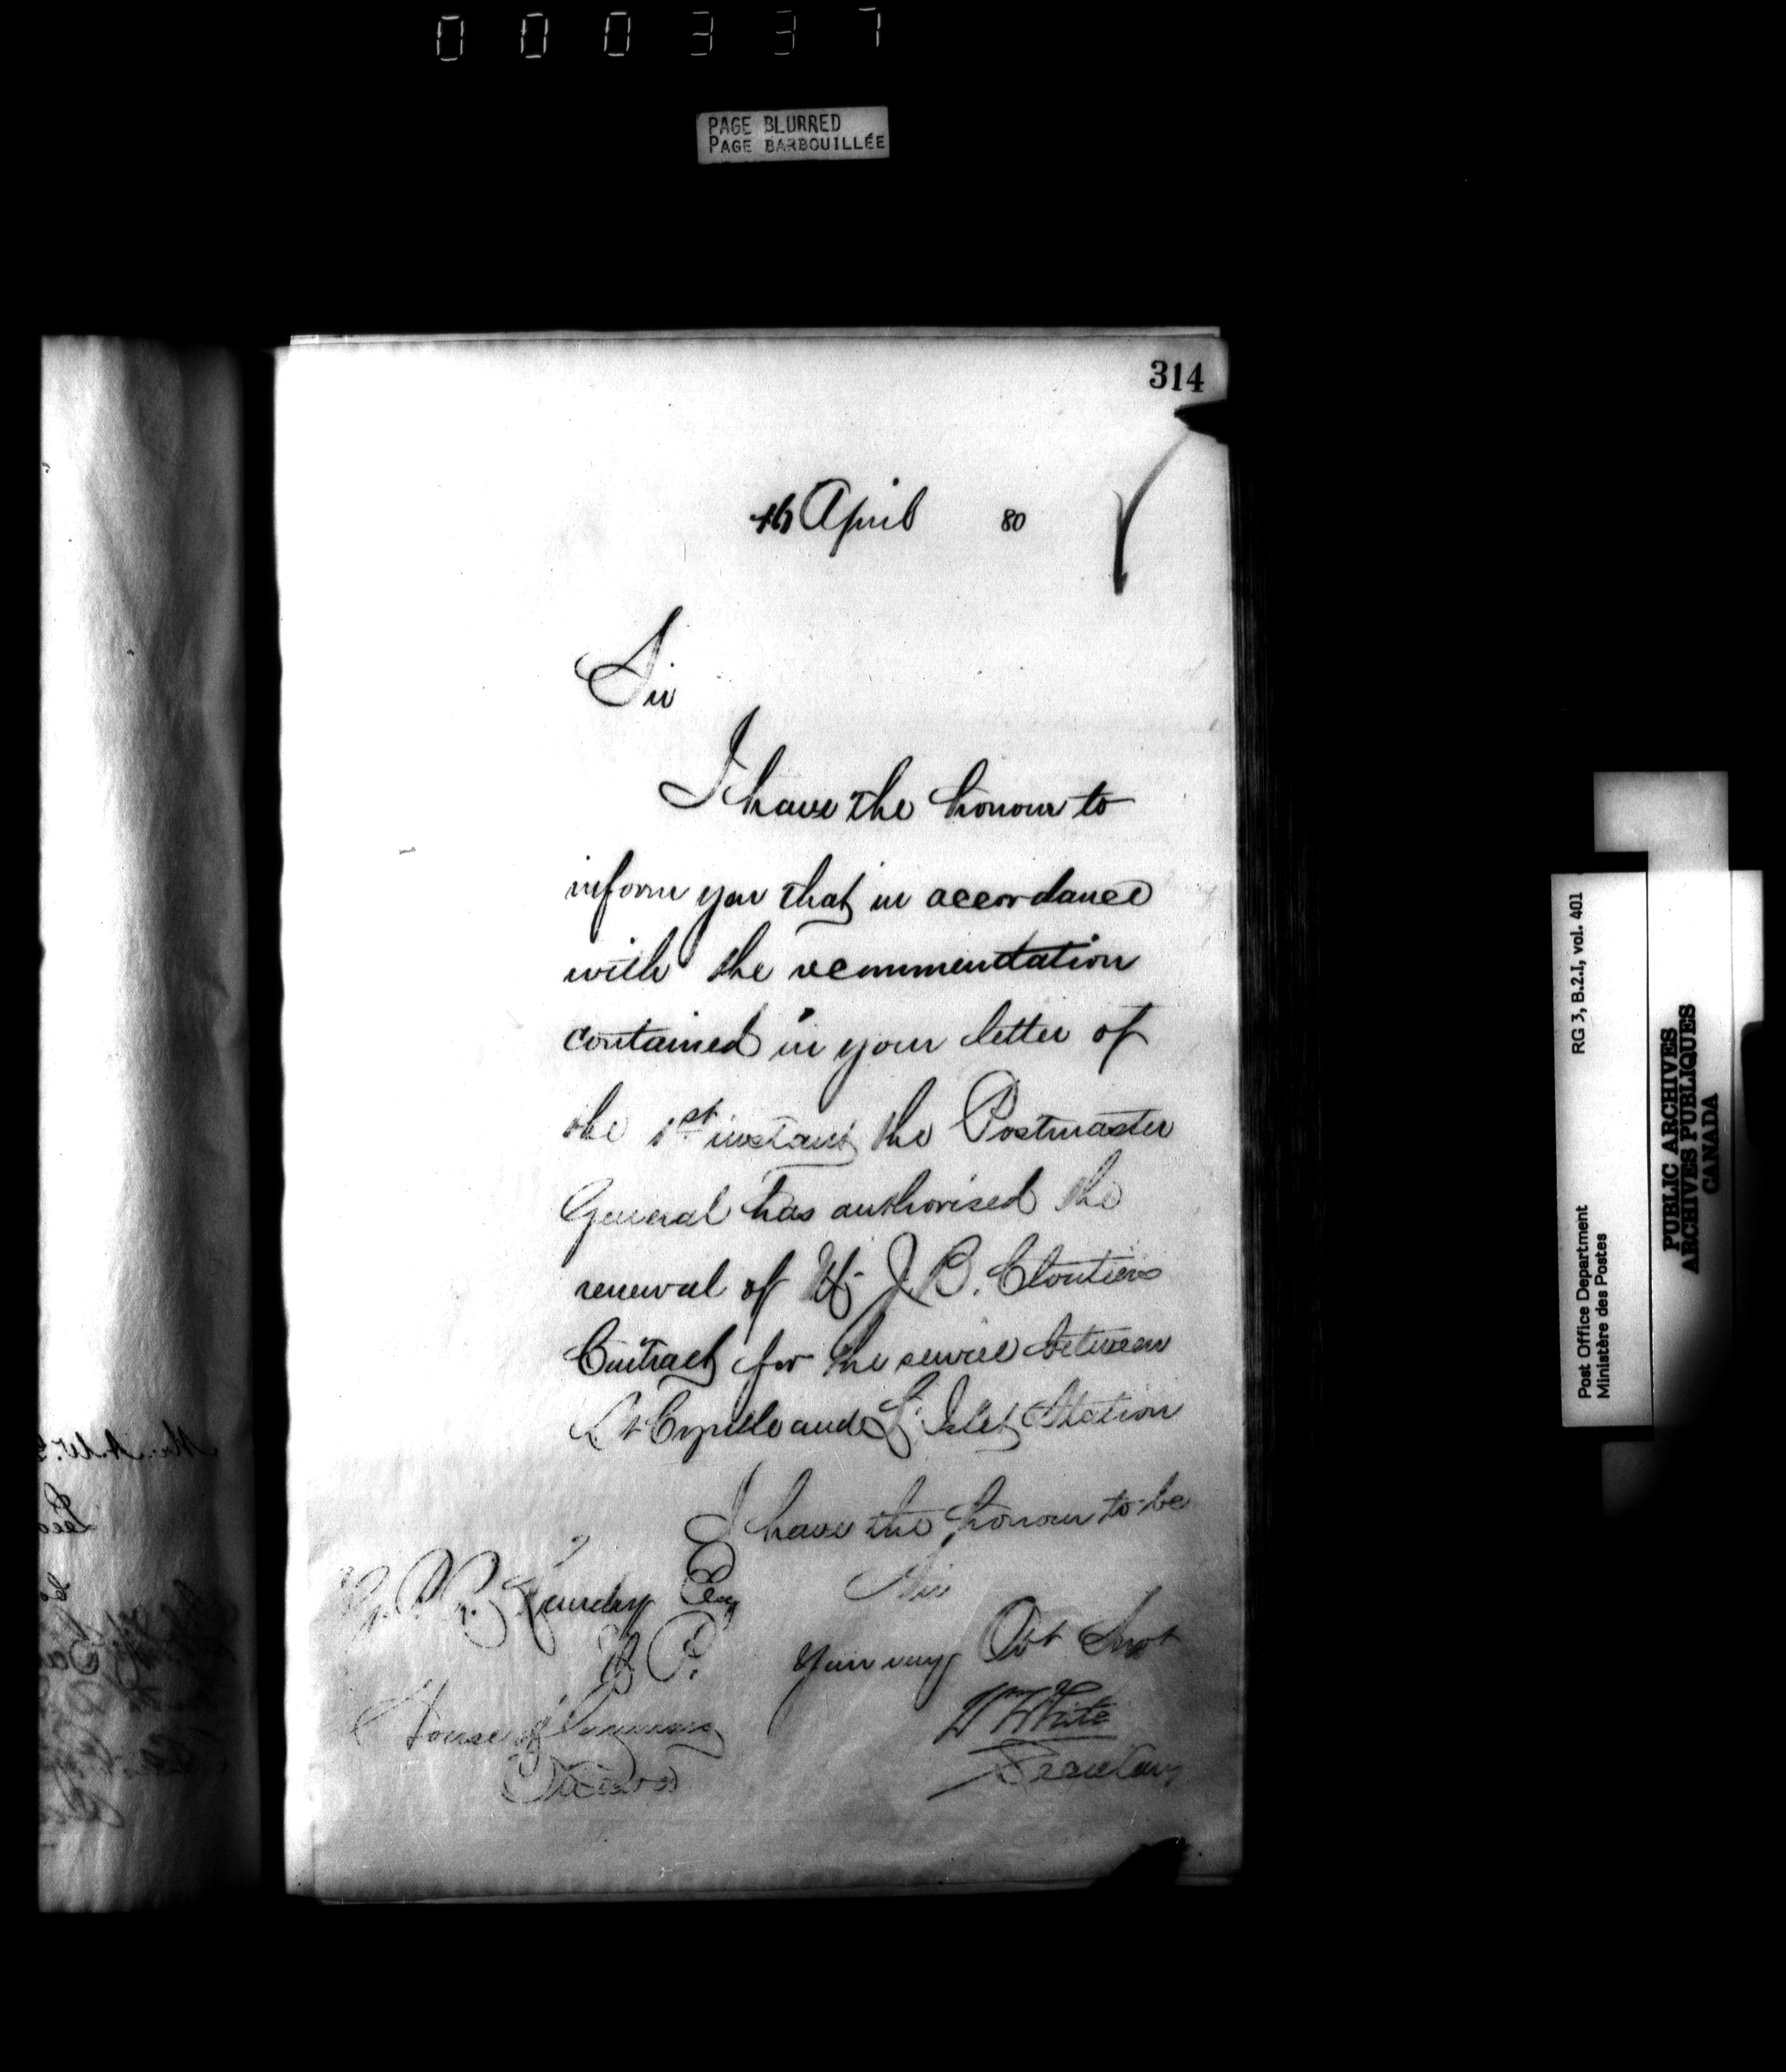 000337
PAGE BLURRED
PAGE BARBOUILLÉE
314
April 80
Sir
I have the honour to
inform you that in accordance
with the recommendation
contained in your letter of
the 1st instant the Postmaster
General has authorised the
renewal of Mr J. B. Cloutiers
Contract for the service between
St Cyrille and L'Islet Station
I have the honour to be
Sir
Your very Obt Servt
Wm White
Secretary
P. B. Esq
M P.
House of Commons
Ottawa
RG 3, B.2.I, vol. 401
Post Office Department
Ministère des Postes
PUBLIC ARCHIVES
ARCHIVES PUBLIQUES
CANADA